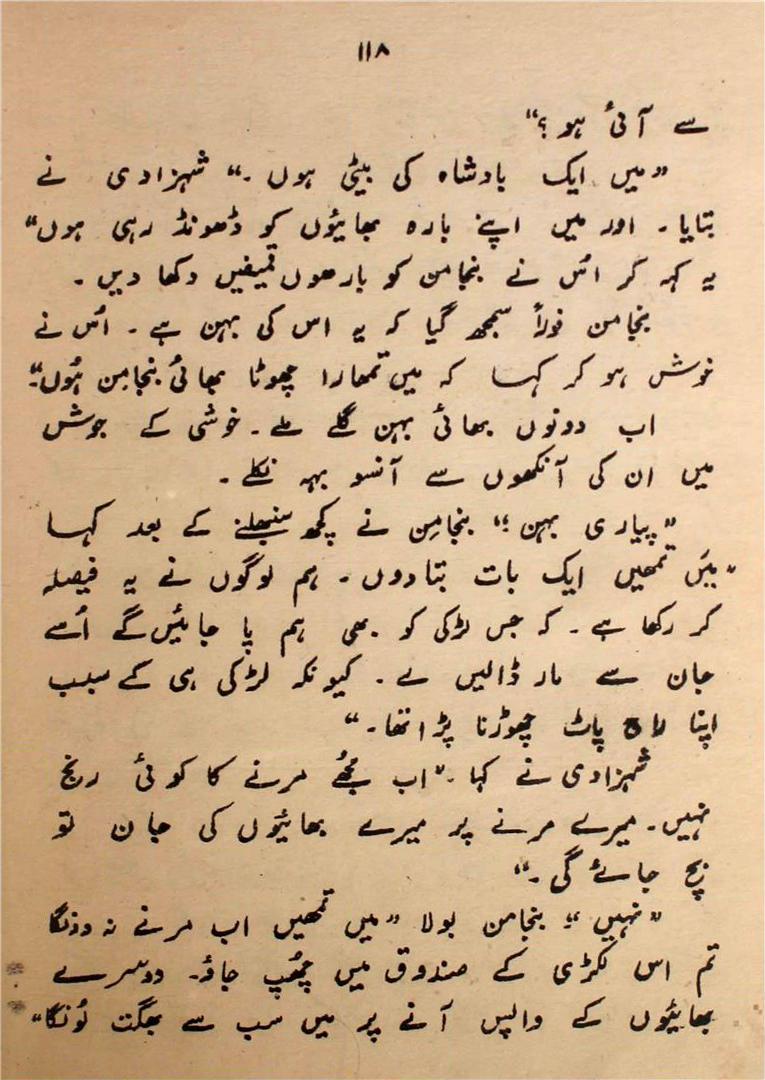 ۱۱۸
سے آئی ہو؟“
”میں ایک بادشاہ کی بیٹی ہوں۔“ شہزادی نے
بتایا۔ اور میں اپنے بارہ بھائیوں کو ڈھونڈ رہی ہوں“
یہ کہہ کر اُس نے بنجامن کو بارھوں قمیضیں دکھا دیں۔
بنجامن فوراً سمجھ گیا کہ یہ اس کی بہن ہے۔ اُس نے
خوش ہو کر کہا کہ میں تمھارا چھوٹا بھائی بنجامِن ہُوں“۔
اب دونوں بھائی بہن گلے ملے۔ خوشی کے جوش
میں ان کی آنکھوں سے آنسو بہہ نکلے۔
”پیاری بہن!“ بنجامِن نے کچھ سنبھلنے کے بعد کہا
”میَں تمھیں ایک بات بتا دوں۔ ہم لوگوں نے یہ فیصلہ
کر رکھا ہے۔ کہ جس لڑکی کو بھی ہم پا جائیں گے اُسے
جان سے مار ڈالیں گے۔ کیونکہ لڑکی ہی کے سبب
اپنا راج پاٹ چھوڑنا پڑا تھا۔“
شہزادی نے کہا۔ ”اب مجُھے مرنے کا کوئی رنج
نہیں۔ میرے مرنے پر میرے بھائیوں کی جان تو
بچ جائے گی۔“
”نہیں!“ بنجامن بولا ”میں تمھیں اب مرنے نہ دونگا
تم اس لکڑی کے صندوق میں چھُپ جاؤ۔ دوسرے
بھائیوں کے واپس آنے پر میں سب سے بھگت لُونگا“